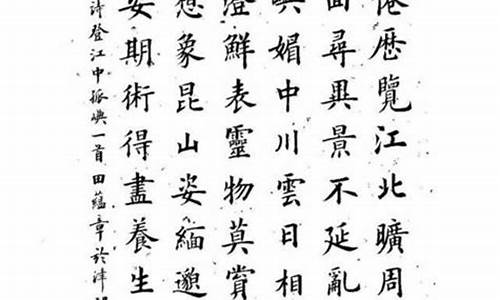 歷覽江北曠周
尋異景不延亂
嶼媚中川雲日相
澄鮮表靈物莫賞
想象昆山姿緬邈
安期術得盡養生
詩登江中孤嶼一首田蘊章於津